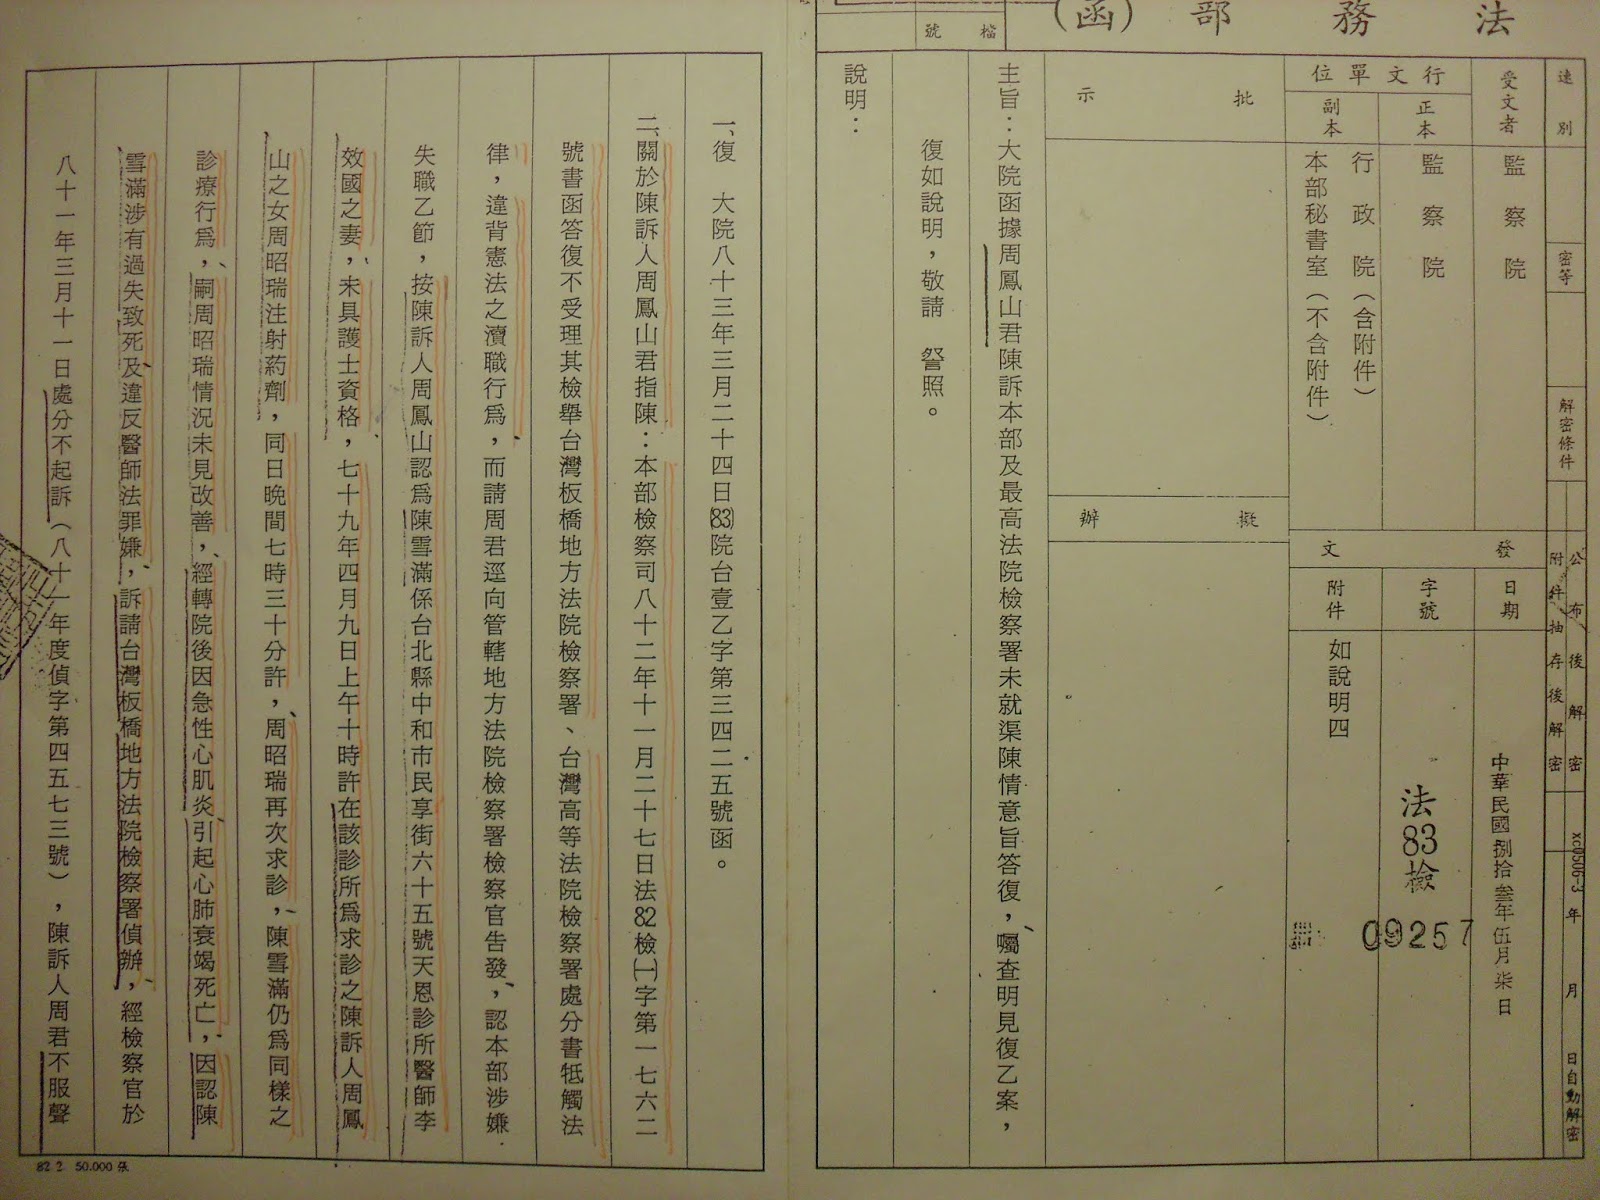 法務部(函)
檔號
速別
密等
解密條件
公布後解密
附件抽存後解密
年月日自動解密
xc0506-3
受文者
監察院
行文單位
正本
監察院
副本
行政院(含附件)
本部秘書室(不含附件)
發文
日期
中華民國捌拾叁年伍月柒日
字號
法83檢
09257
附件
如說明四
批示
擬辦
主旨：大院函據周鳳山君陳訴本部及最高法院檢察署未就渠陳情意旨答復，囑查明見復乙案，
復如說明，敬請 詧照。
說明：
一、復 大院八十三年三月二十四日(83)院台壹乙字第三四二五號函。
二、關於陳訴人周鳳山君指陳：本部檢察司八十二年十一月二十七日法82檢(一)字第一七六二
號書函答復不受理其檢舉台灣板橋地方法院檢察署、台灣高等法院檢察署處分書牴觸法
律，違背憲法之瀆職行為，而請周君逕向管轄地方法院檢察署檢察官告發，認本部涉嫌
失職乙節，按陳訴人周鳳山認為陳雪滿係台北縣中和市民享街六十五號天恩診所醫師李
效國之妻，未具護士資格，七十九年四月九日上午十時許在該診所為求診之陳訴人周鳳
山之女周昭瑞注射葯劑，同日晚間七時三十分許，周昭瑞再次求診，陳雪滿仍為同樣之
診療行為，嗣周昭瑞情況未見改善，經轉院後因急性心肌炎引起心肺衰竭死亡，因認陳
雪滿涉有過失致死及違反醫師法罪嫌，訴請台灣板橋地方法院檢察署偵辦，經檢察官於
八十一年三月十一日處分不起訴(八十一年度偵字第四五七三號)，陳訴人周君不服聲
82.2. 50.000張